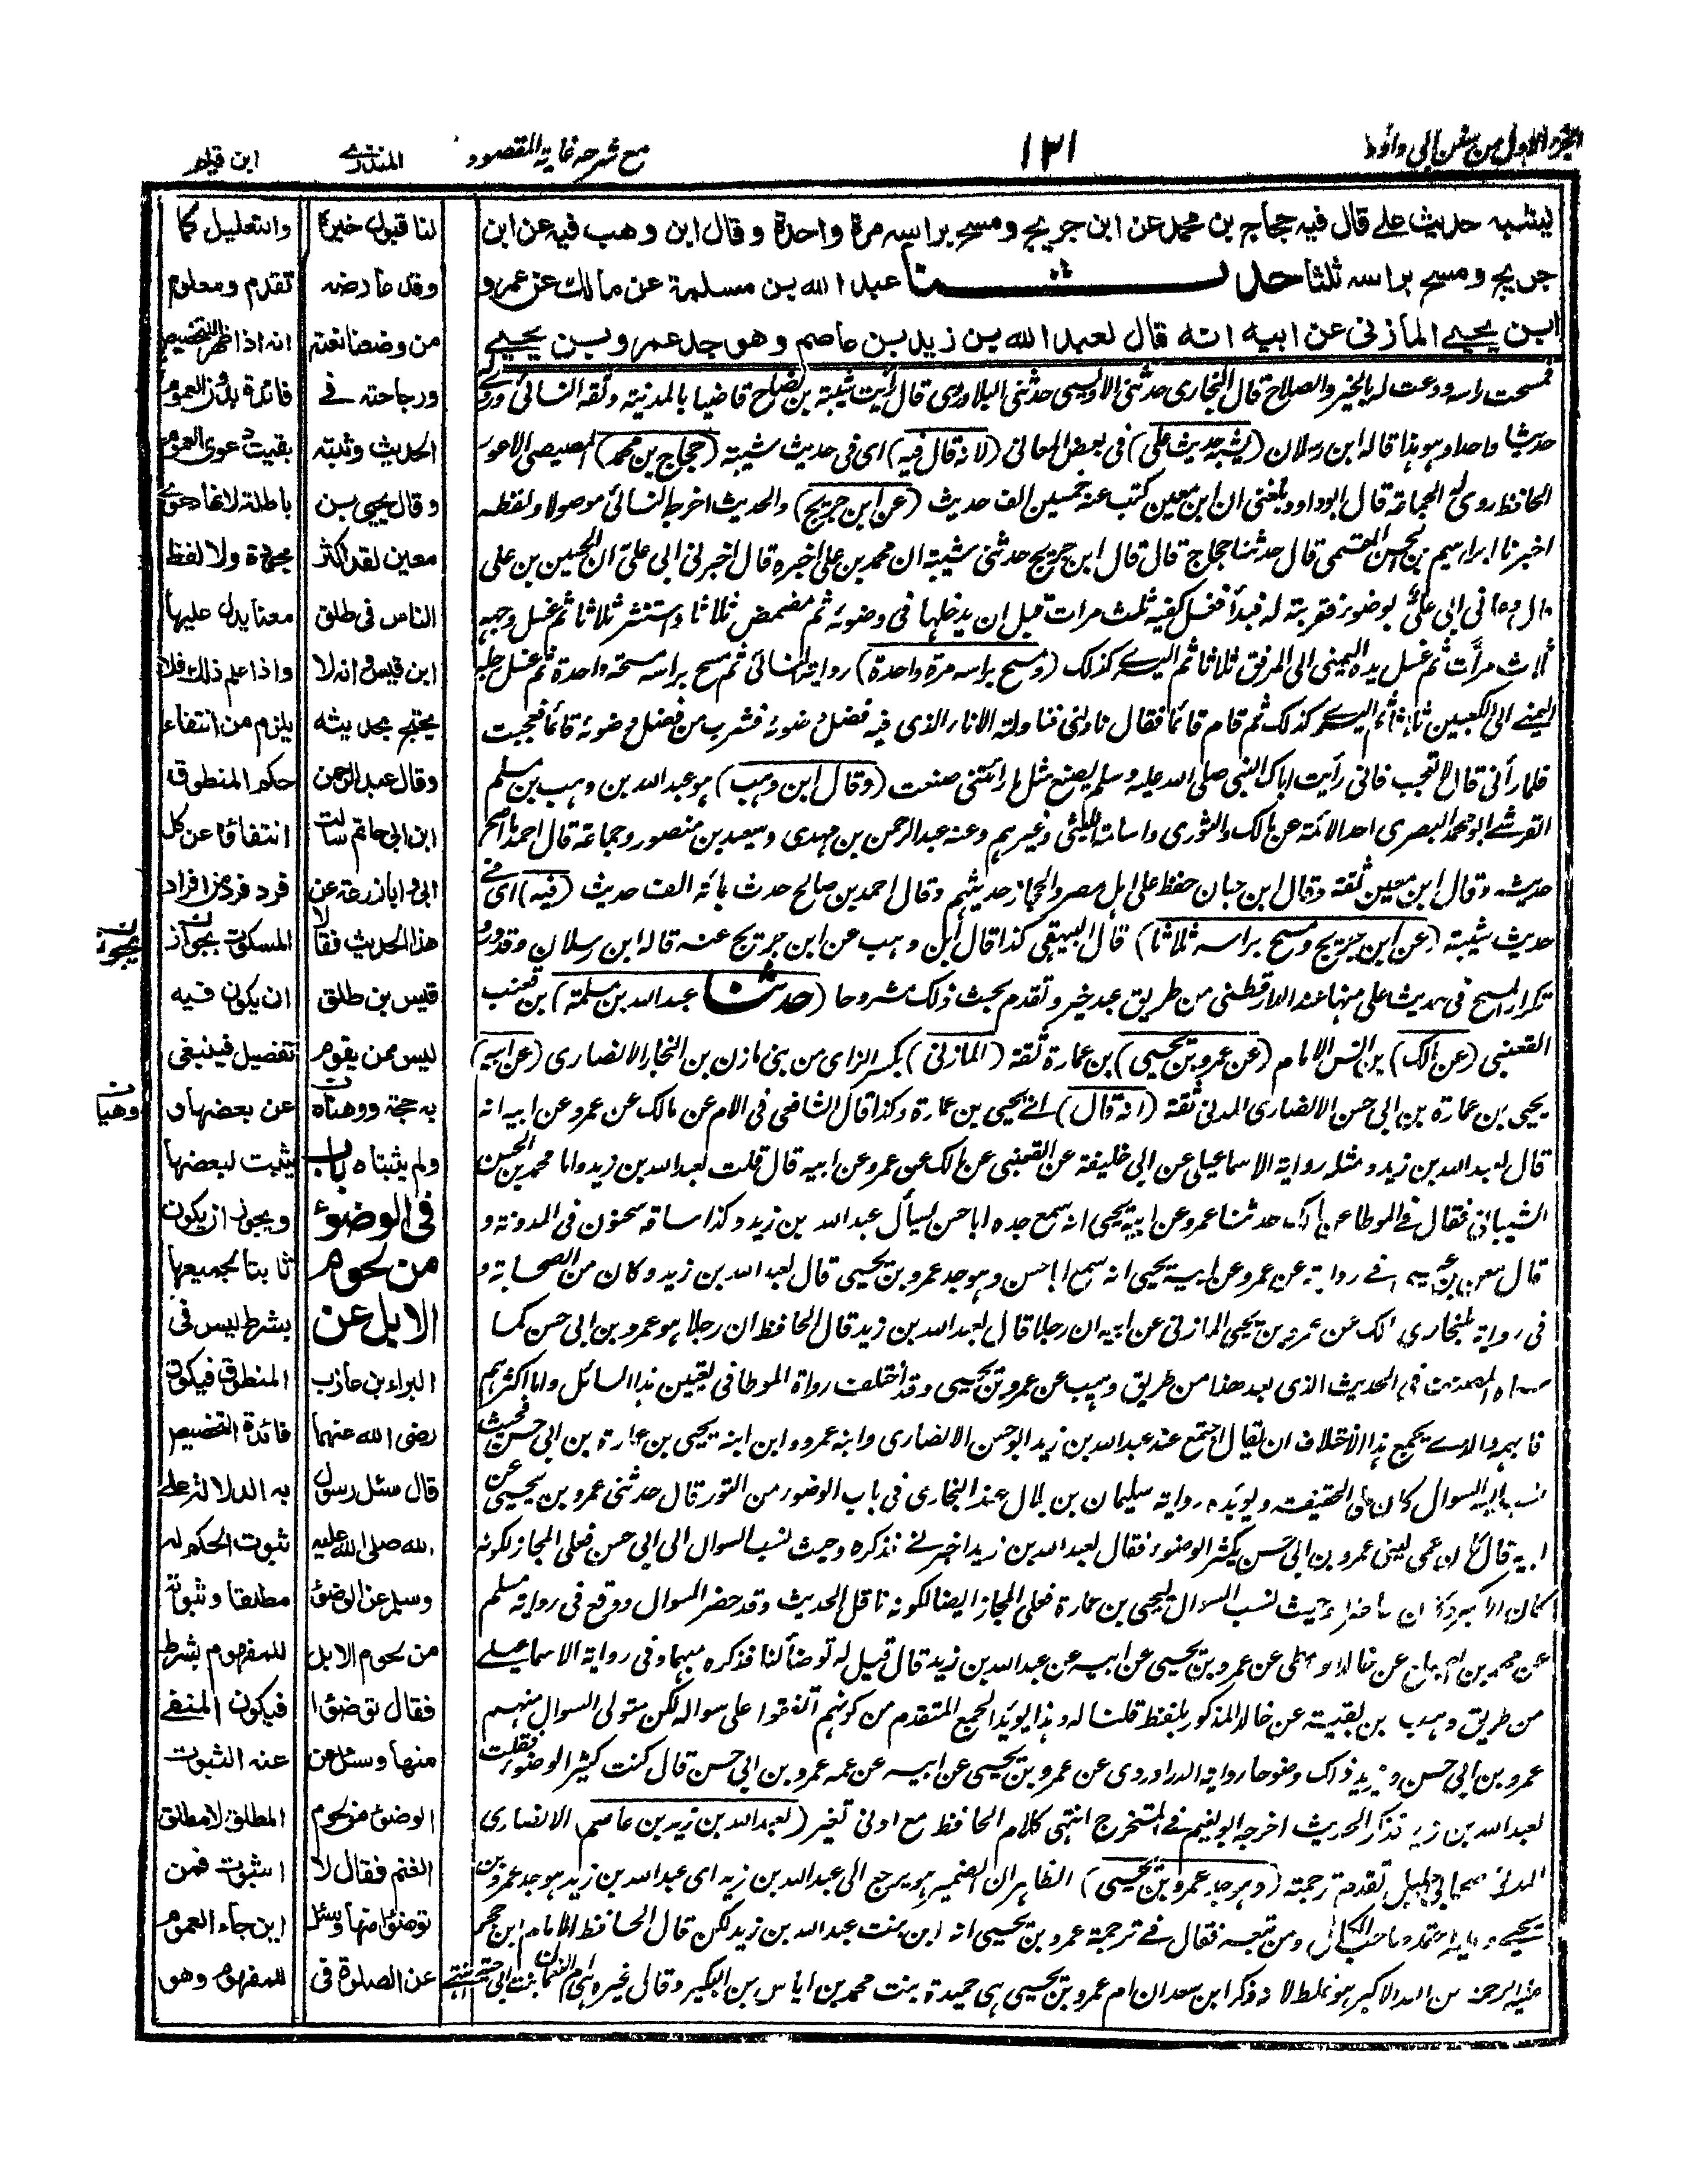 الجزء الاول من سنن ابي داود
١٢١
مع شرحه غاية المقصود
المنذري
ابن قيم
يشبه حديث علي قال فيه حجاج بن محمد عن ابن جريج ومسح براسه مرة واحدة وقال ابن وهب فيه عن ابن
جريج ومسح براسه ثلثا حدثنا عبد الله بن مسلمة عن مالك عن عمرو
ابن يحيى المازني عن ابيه انه قال لعبد الله بن زيد بن عاصم وهو جد عمرو بن يحيى
فمسحت راسه ودعت له بالخير والصلاح قال البخاري حدثني الاويسي حدثني الدراوردي قال رأيت شيبة بن نصاح قاضيا بالمدينة وثقه النسائي وروى له
حديثا واحدا وهو هذا قاله ابن رسلان (يشبه حديث علي) في بعض المعاني (لانه قال فيه) اى في حديث شيبة (حجاج بن محمد) المصيصي الاعور
الحافظ روى له الجماعة قال ابو داود بلغني ان ابن معين كتب عنه خمسين الف حديث (عن ابن جريج) والحديث اخرجه النسائي موصولا ولفظه
اخبرنا ابراهيم بن الحسن المقسمي قال حدثنا حجاج قال قال ابن جريج حدثني شيبة ان محمد بن علي اخبره قال اخبرني ابي علي ان الحسين بن علي
قال دعاني ابي علي بوضوء فقربته له فبدأ فغسل كفيه ثلث مرات قبل ان يدخلها في وضوئه ثم مضمض ثلاثا واستنثر ثلاثا ثم غسل وجهه
ثلاث مرات ثم غسل يده اليمنى الى المرفق ثلاثا ثم اليسرى كذلك (ومسح براسه مرة واحدة) رواية النسائي ثم مسح براسه مسحة واحدة ثم غسل رجله
اليمنى الى الكعبين ثلاثا ثم اليسرى كذلك ثم قام قائما فقال ناولني فناولته الاناء الذي فيه فضل وضوئه فشرب من فضل وضوئه قائما فعجبت
فلما رأني قال لا تعجب فاني رأيت اباك النبي صلى الله عليه وسلم يصنع مثل ما رأيتني صنعت (وقال ابن وهب) هو عبد الله بن وهب بن مسلم
القرشي ابو محمد البصري احد الائمة عن مالك والثوري واسامة الليثي وغيرهم وعنه عبد الرحمن بن مهدي وسعيد بن منصور وجماعة قال احمد ما اصح
حديثه وقال ابن معين ثقة وقال ابن حبان حفظ على اهل مصر والحجاز حديثهم وقال احمد بن صالح حدث بمائة الف حديث (فيه) اى في
حديث شيبة (عن ابن جريج ومسح براسه ثلاثا) قال البيهقي كذا قال ابن وهب عن ابن جريج عنه قاله ابن رسلان وقد ورد
تكرار المسح في حديث علي منها عند الدارقطني من طريق عبد خير وتقدم بحث ذلك مشروحا (حدثنا عبد الله بن مسلمة) بن قعنب
القعنبي (عن مالك) بن انس الامام (عن عمرو بن يحيى) بن عمارة ثقة (المازني) بكسر الزاى من بني مازن بن النجار الانصاري (عن ابيه)
يحيى بن عمارة بن ابي حسن الانصاري المدني ثقة (انه قال) اى يحيى بن عمارة وكذا قال الشافعي في الام عن مالك عن عمرو عن ابيه انه
قال لعبد الله بن زيد ومثله رواية الاسماعيلي عن ابي خليفة عن القعنبي عن مالك عن عمرو عن ابيه قال قلت لعبد الله بن زيد واما محمد بن الحسن
الشيباني فقال في الموطا عن مالك حدثنا عمرو عن ابيه يحيى انه سمع جده ابا حسن يسأل عبد الله بن زيد وكذا ساقه سحنون في المدونة و
قال معن بن عيسى في روايته عن عمرو عن ابيه يحيى انه سمع ابا حسن وهو جد عمرو بن يحيى قال لعبد الله بن زيد وكان من الصحابة و
في رواية للبخاري مالك عن عمرو بن يحيى المازني عن ابيه ان رجلا قال لعبد الله بن زيد قال الحافظ ان رجلا هو عمرو بن ابي حسن كما
سماه المصنف في الحديث الذي بعد هذا من طريق وهيب عن عمرو بن يحيى وقد اختلف رواة الموطا في تعيين هذا السائل واما اكثرهم
فابهمه والذي يجمع هذا الاختلاف ان يقال اجتمع عند عبد الله بن زيد ابو حسن الانصاري وابنه عمرو وابن ابنه يحيى بن عمارة بن ابي حسن فحيث
نسب اليه السوال كان على الحقيقة ويؤيده رواية سليمان بن بلال عند البخاري في باب الوضوء من التور قال حدثني عمرو بن يحيى عن
ابيه قال كان عمي يعني عمرو بن ابي حسن يكثر الوضوء فقال لعبد الله بن زيد اخبرني فذكره وحيث نسب السوال الى ابي حسن فعلى المجاز لكونه
كان الاكبر وكان حاضرا وحيث نسب السوال ليحيى بن عمارة فعلى المجاز ايضا لكونه ناقل الحديث وقد حضر السوال ووقع في رواية مسلم
عن محمد بن الصباح عن خالد الواسطي عن عمرو بن يحيى عن ابيه عن عبد الله بن زيد قال قيل له توضأ لنا فذكره مبهما وفي رواية الاسماعيلي
من طريق وهب بن بقية عن خالد المذكور بلفظ قلنا له وهذا يؤيد الجمع المتقدم من كونهم اتفقوا على سواله لكن متولي السوال منهم
عمرو بن ابي حسن ويزيد ذلك وضوحا رواية الدراوردي عن عمرو بن يحيى عن ابيه عن عمه عمرو بن ابي حسن قال كنت كثير الوضوء فقلت
لعبد الله بن زيد فذكر الحديث اخرجه ابو نعيم في المستخرج انتهى كلام الحافظ مع ادنى تغير (لعبد الله بن زيد بن عاصم) الانصاري
المدني صحابي جليل تقدمت رجمته (وهو جد عمرو بن يحيى) الظاهر ان الضمير هو يرجع الى عبد الله بن زيد اى عبد الله بن زيد هو جد عمرو بن
يحيى وعليه اعتمد صاحب الكمال ومن تبعه فقال في ترجمة عمرو بن يحيى انه ابن بنت عبد الله بن زيد لكن قال الحافظ الامام ابن حجر
هو غلط لانه ذكر ابن سعد ان ام عمرو بن يحيى هي حميدة بنت محمد بن اياس بن البكير وقال غيره هي ام النعمان بنت ابي حية انتهى
لنا قبول خبره
وقد عارضه
من وصفنا نعته
ورجاحته في
الحديث وثبته
وقال يحيى بن
معين لقد اكثر
الناس في طلق
ابن قيس وانه لا
يحتج بحديثه
وقال عبد الرحمن
ابن ابي حاتم سالت
ابي وابا زرعة عن
هذا الحديث فقالا
قيس بن طلق
ليس ممن يقوم
به حجة ووهناه
ولم يثبتاه باب
في الوضوء
من لحوم
الابل عن
البراء بن عازب
رضى الله عنهما
قال سئل رسول
الله صلى الله عليه
وسلم عن الوضوء
من لحوم الابل
فقال توضئوا
منها وسئل عن
الوضوء من لحوم
الغنم فقال لا
توضئوا منها وسئل
عن الصلوة في
والتعليل كما
تقدم ومعلوم
انه اذا ظهر للتخصيص
فائدة بدون العموم
بقيت دعوى العموم
باطلة لانها دعوى
مجردة ولا لفظ
معنا يدل عليها
واذا علم ذلك فلا
يلزم من انتفاء
حكم المنطوق
انتفاؤه عن كل
فرد فرد من افراد
المسكوت بجواز
ان يكون فيه
تفصيل فينبغي
عن بعضها و
يثبت لبعضها
ويجوز ان يكون
ثابتا لجميعها
بشرط ليس في
المنطوق فيكون
فائدة التخصيص
به الدلالة على
ثبوت الحكم له
مطلقا وثبوته
للمفهوم بشرط
فيكون المنفي
عنه الثبوت
المطلق لا مطلق
الثبوت فمن
اين جاء العموم
للمفهوم وهو